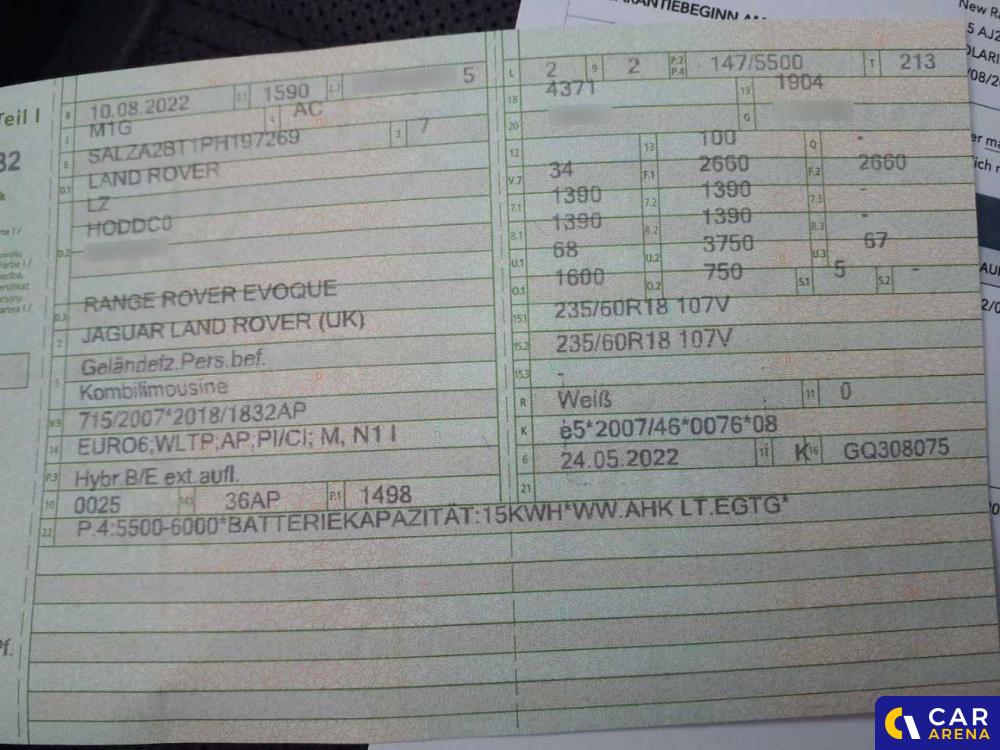 GARANTIEBEGINN AM
New R
5 AJ2
OLARI
/08/2
Teil I
32
B 10.08.2022 2.1 1590 2.2 5
L 2 9 2 P.2 P.4 147/5500 T 213
J M1G 4 AC
18 4371 19 1904
E SALZA2BT1PH197269 3 7
20 G
D.1 LAND ROVER
12 13 100 Q -
LZ
V.7 34 F.1 2660 F.2 2660
D.2 HODDC0
7.1 1390 7.2 1390 7.3 -
8.1 1390 8.2 1390 8.3 -
U.1 68 U.2 3750 U.3 67
D.3 RANGE ROVER EVOQUE
O.1 1600 O.2 750 S.1 5 S.2 -
2 JAGUAR LAND ROVER (UK)
15.1 235/60R18 107V
5 Geländefz.Pers.bef.
15.2 235/60R18 107V
Kombilimousine
15.3 -
V.9 715/2007*2018/1832AP
R Weiß 11 0
14 EURO6;WLTP;AP;PI/CI; M, N1 I
K e5*2007/46*0076*08
P.3 Hybr.B/E ext.aufl.
6 24.05.2022 17 K 16 GQ308075
10 0025 14.1 36AP P.1 1498
21
22 P.4:5500-6000*BATTERIEKAPAZITÄT:15KWH*WW.AHK LT.EGTG*
CAR
ARENA